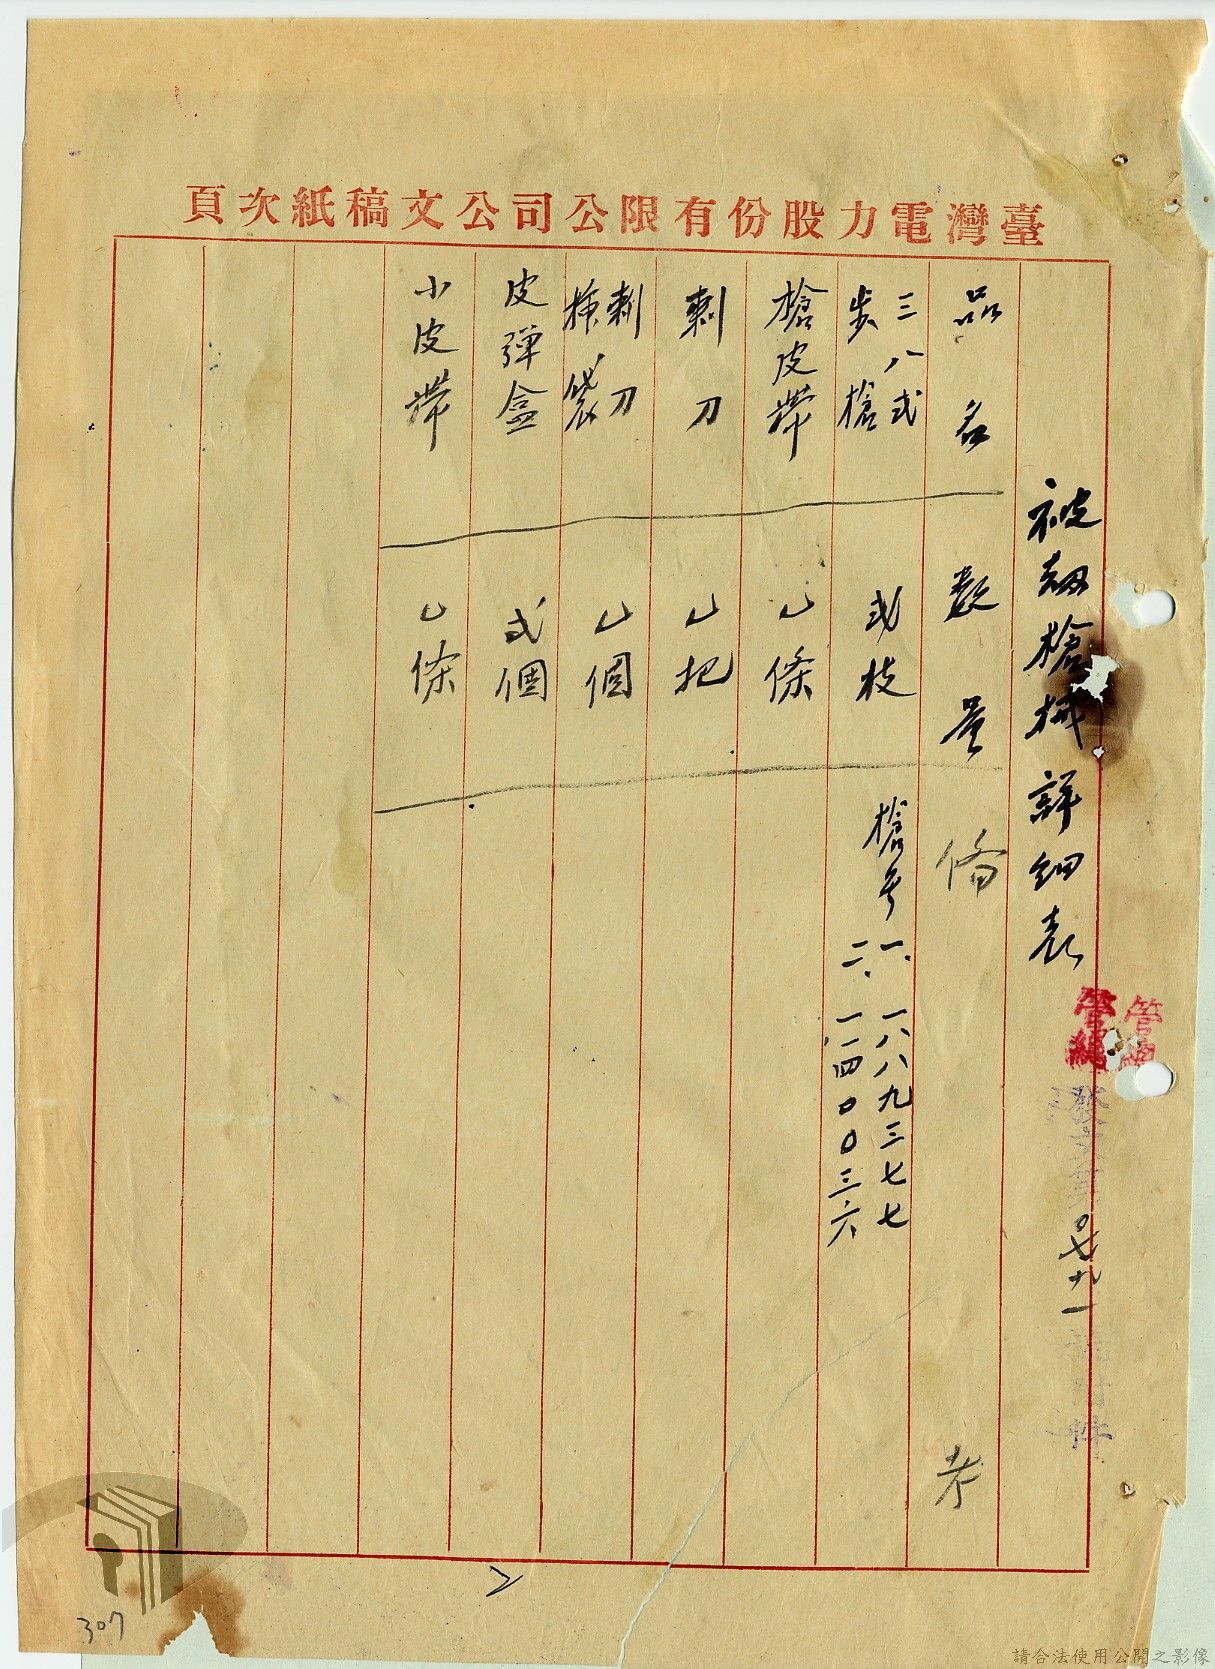 臺灣電力股份有限公司公文稿紙次頁
被刼槍械詳細表
品名 数量 俻考
三八式步槍 弍枝 槍号 一、一八八九三七七
二、一一四〇〇三六
槍皮帶 乙條
刺刀 乙把
刺刀掛袋 乙個
皮彈盒 弍個
小皮帶 乙條
發文
〇七九一
附件
2
307
請合法使用公開之影像